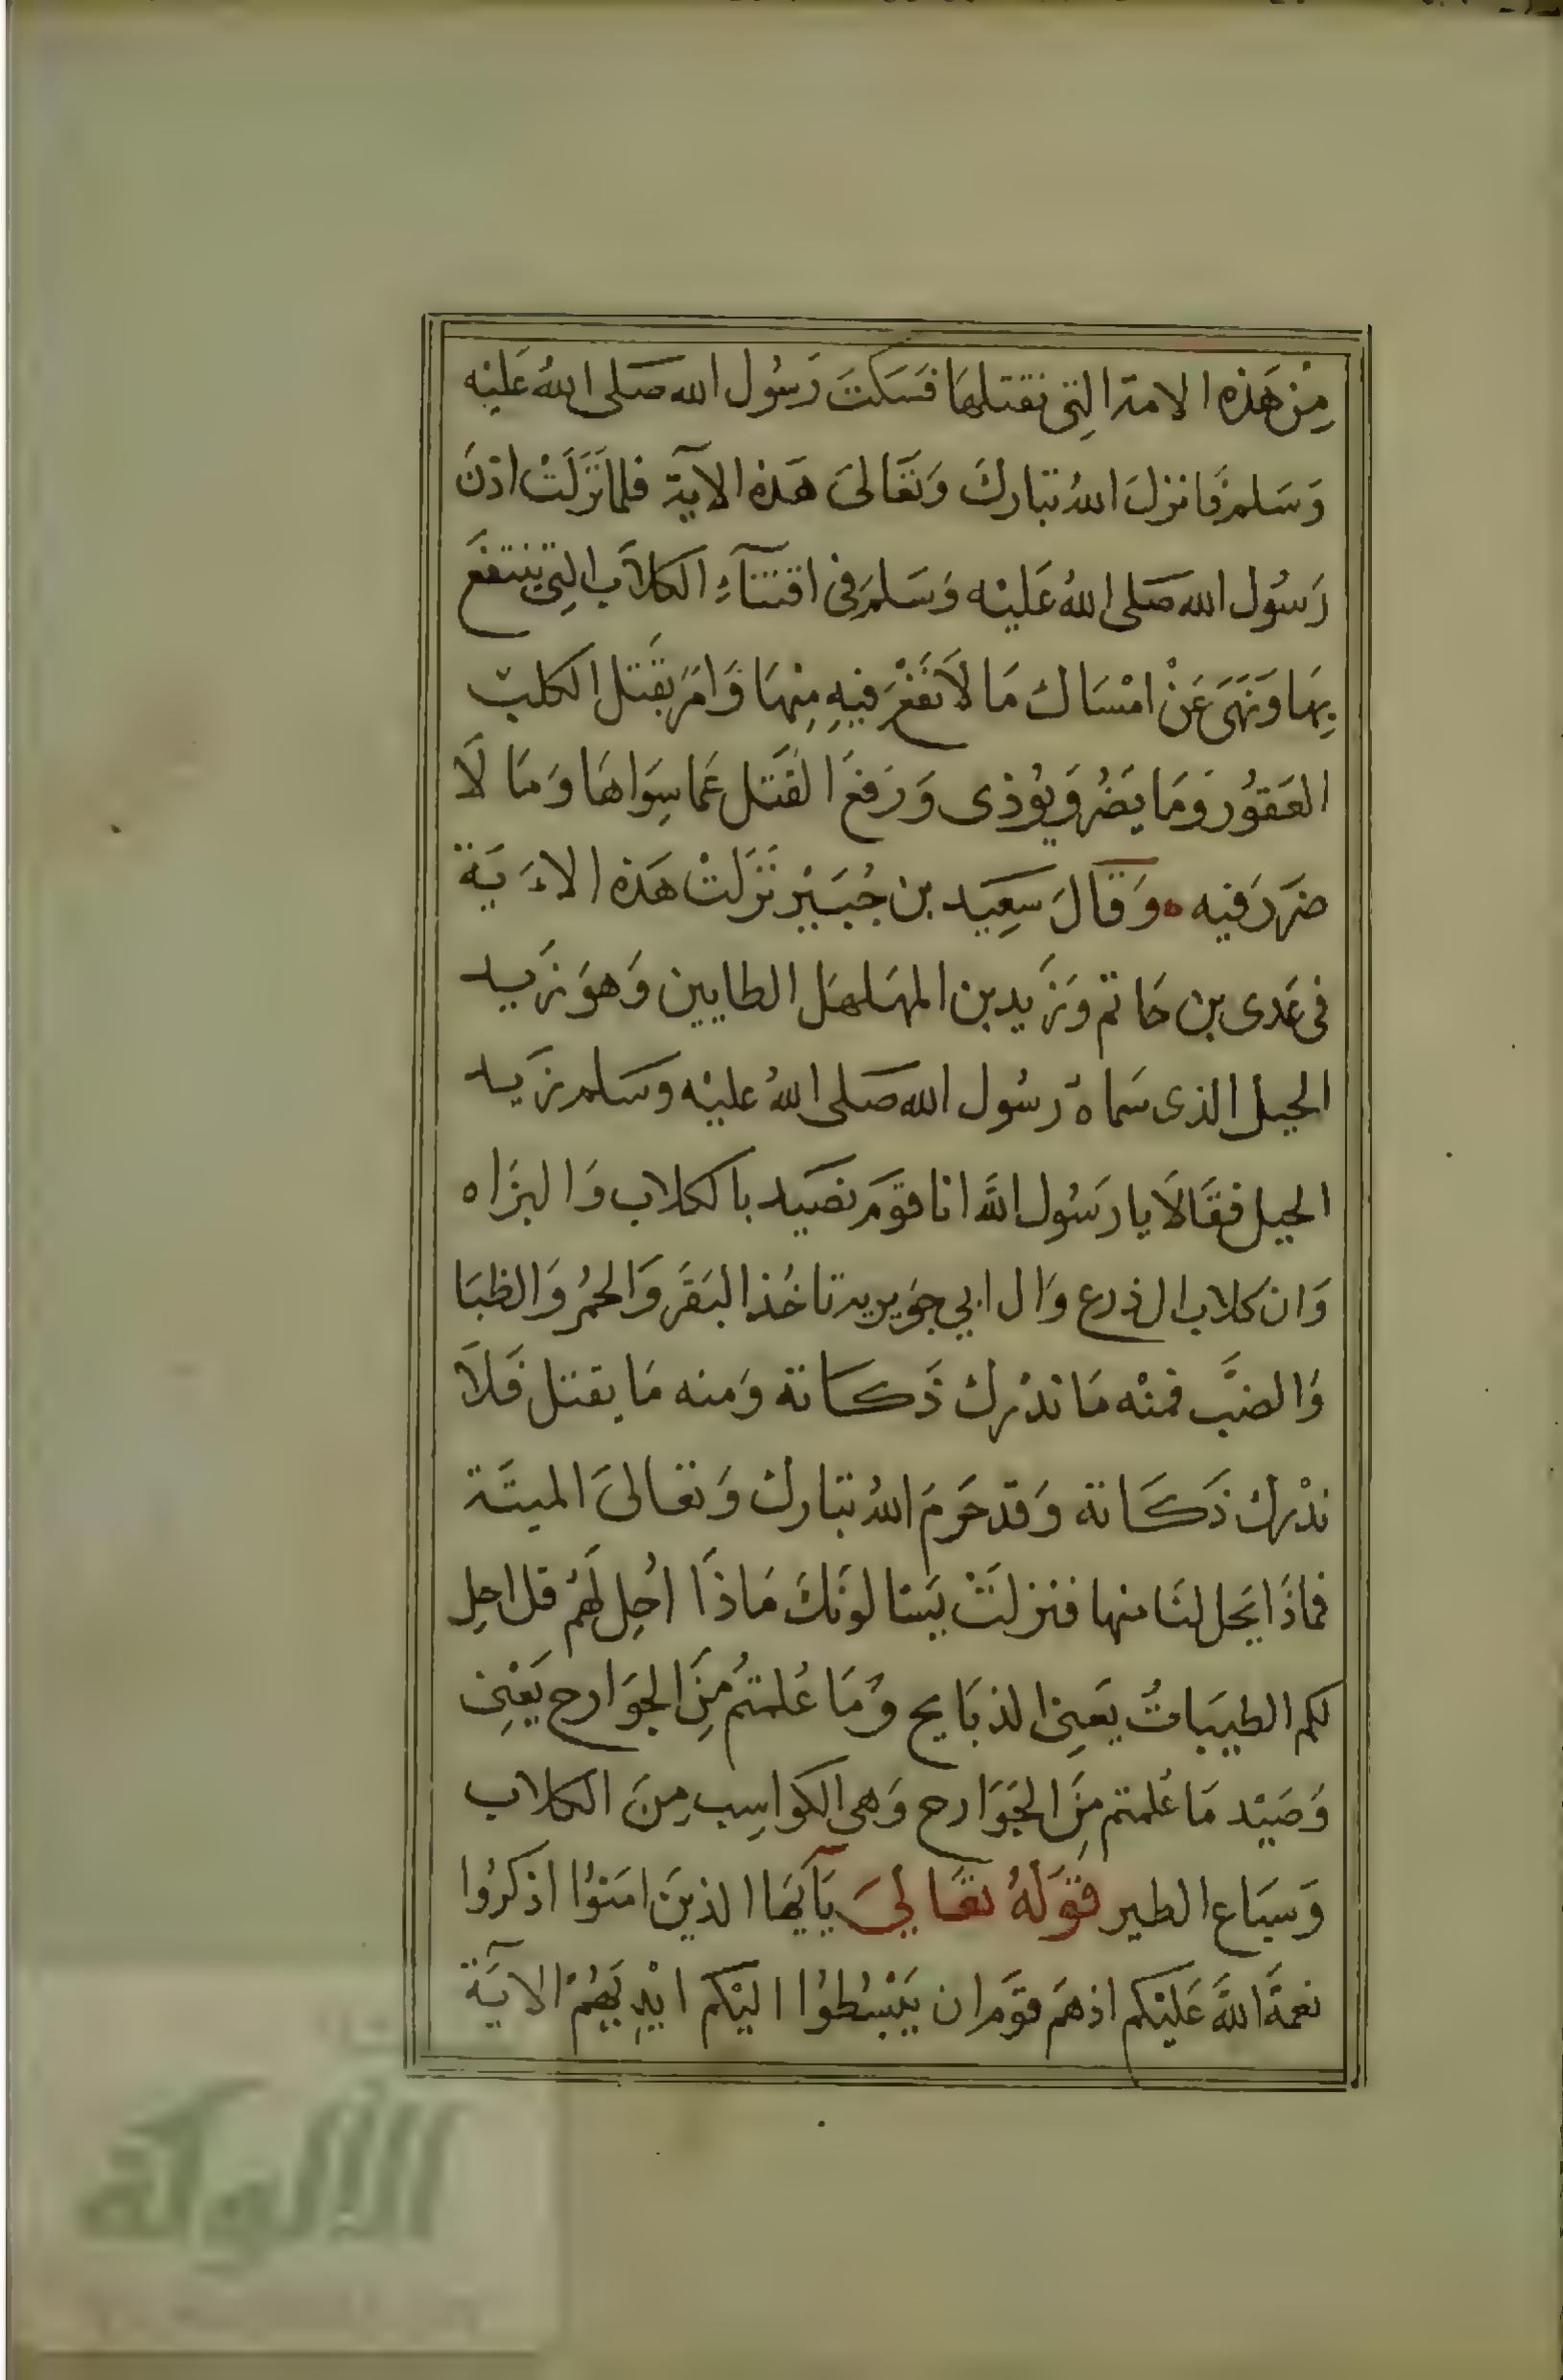 مِنْ هَذِه الامة التِي نقتلهَا فسَكتَ رَسُول الله صَلى اللهُ عَليْه
وَسَلم فَانزلَ اللهُ تبَاركَ وَتعَالىَ هَذه الآية فلما نَزَلَتْ اذنَ
رَسُول الله صَلى اللهُ عَليْه وَسَلمَ فى اقتنَآءِ الكلاَب التِى ينتفعَ
بِهَا وَنَهَى عَنْ امْسَاك مَا لاَ نَفْعَ فيهِ مِنْهَا وَامَرَ بقَتل الكلب
العَقوُر وَمَا يضُر وَيوُذى وَرَفعَ القَتل عَما سِوَاهَا وَمَا لَا
ضرَرَ فيه ه وَقَالَ سَعِيَد بن جُبَيْر نَزَلتْ هَذه الاءَيَة
فى عَدى بن حَاتم وَزَيد بن المهَلهَل الطايين وَهوَ زَيد
الجيل الذى سَماهُ رَسُول الله صَلى اللهُ عليْه وسَلم زَيد
الحيل فقَالَا يا رَسُول اللَّه انا قوَم نصَيد بالكلاب وَالبزَاه
وَان كلاب ال ذرع وَال ابي جوَيرية تاخُذ البَقَر وَالحمُر وَالظبَا
وَالضبَّ فمنْه مَا ندْرك ذَكَاتة وَمنه مَا يقتل فَلاَ
ندْرك ذَكَاتة وَقد حَرمَ اللهُ تبَارك وَتعَالىَ الميتَة
فمَاذَا يَحل لنَا منها فنزلَتْ يَسَالونَكَ مَاذَا احُِل لَهُم قل احِل
لكم الطيبَاتُ يَعنِى الذبَايح وَمَا عُلمتمُ مِنَ الجوَارح يَعْنِى
وَصَيْد مَا عُلمتم مِنَ الجَوَارح وَهى الكواسِب مِنَ الكلاب
وَسبَاع الطير قوَلهُ تعَاليَ يَآيهَا الذينَ امَنوُا اذكرُوا
نعمَةَ اللَّه عَليْكم اذ همَ قوَم ان يَبْسُطوُا اليْكم ايْدِيَهُمْ الآيَة
الألوكة